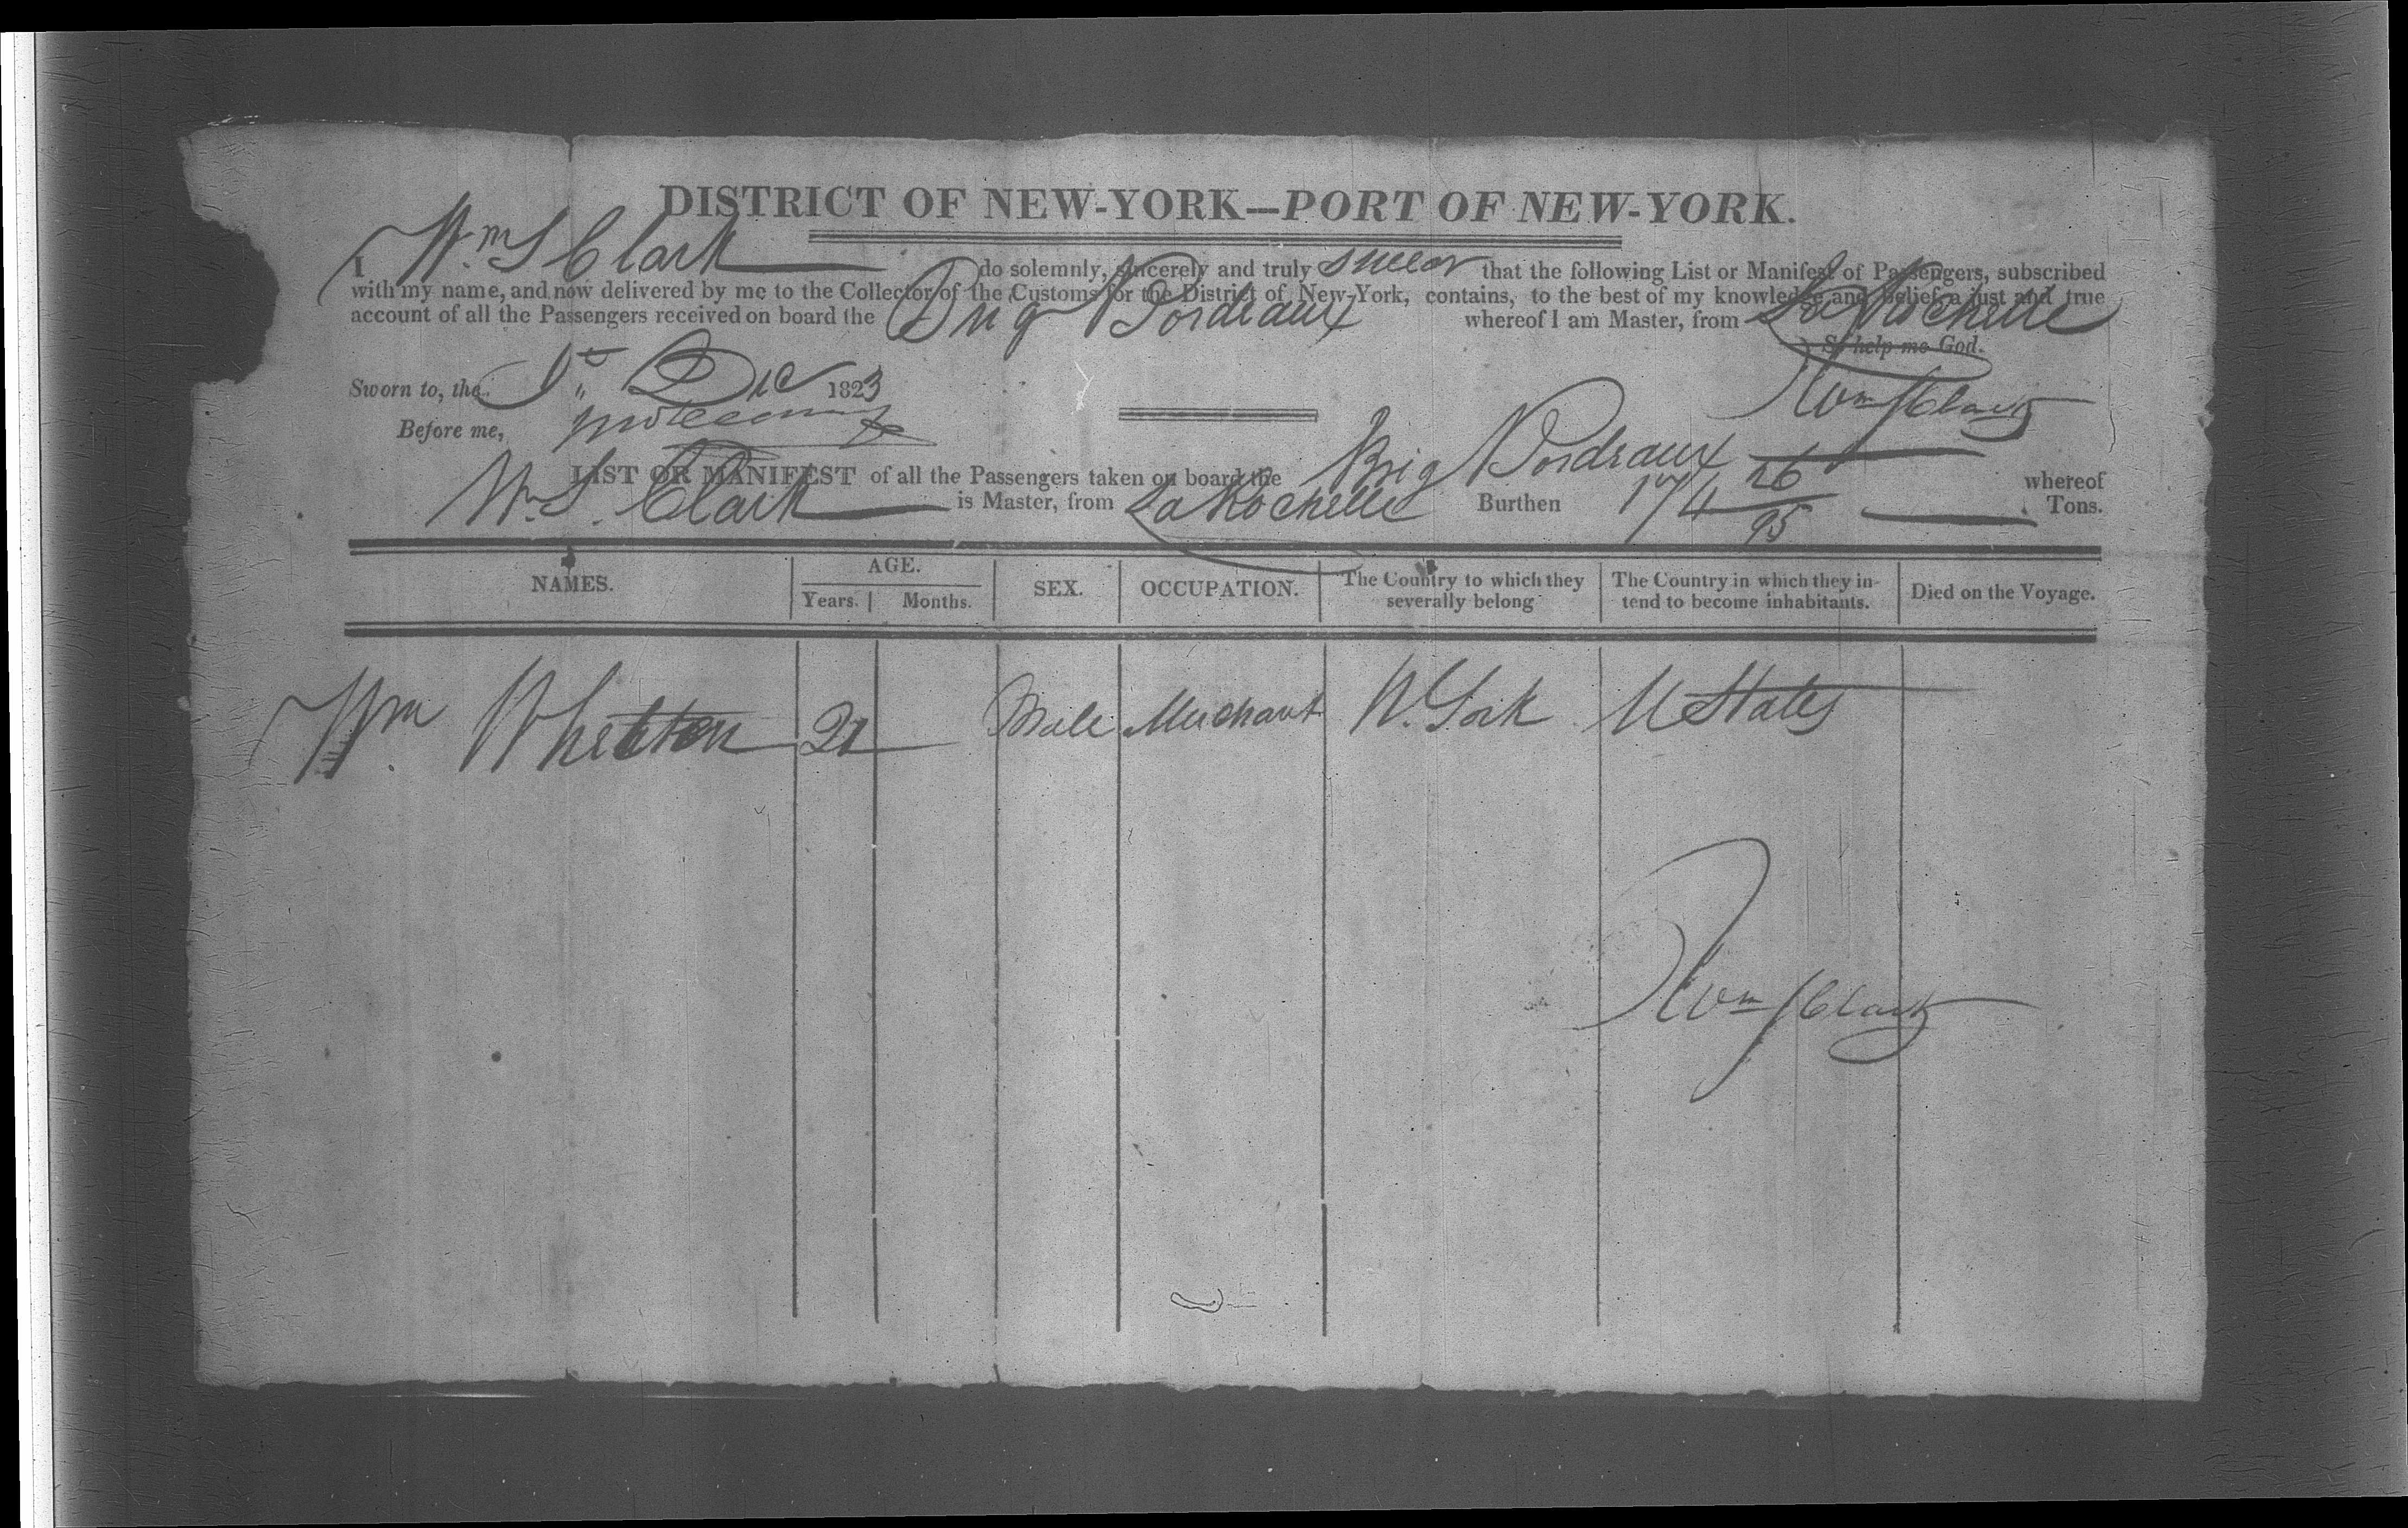 DISTRICT OF NEW-YORK—PORT OF NEW-YORK.
I Wm S Clark do solemnly, sincerely and truly swear that the following List or Manifest of Passengers, subscribed
with my name, and now delivered by me to the Collector of the Customs for the District of New-York, contains, to the best of my knowledge and belief, a just and true
account of all the Passengers received on board the Brig Bordeaux whereof I am Master, from La Rochelle
So help me God.
Sworn to, the 1st Dec 1823
Wm S Clark
Before me,
LIST OR MANIFEST of all the Passengers taken on board the Brig Bordeaux whereof
Wm S. Clark is Master, from La Rochelle Burthen 174 26/95 Tons.
NAMES. AGE. Years. Months. SEX. OCCUPATION. The Country to which they severally belong The Country in which they intend to become inhabitants. Died on the Voyage.
Wm Whetten 21 Male Merchant N. York U States
Wm S Clark